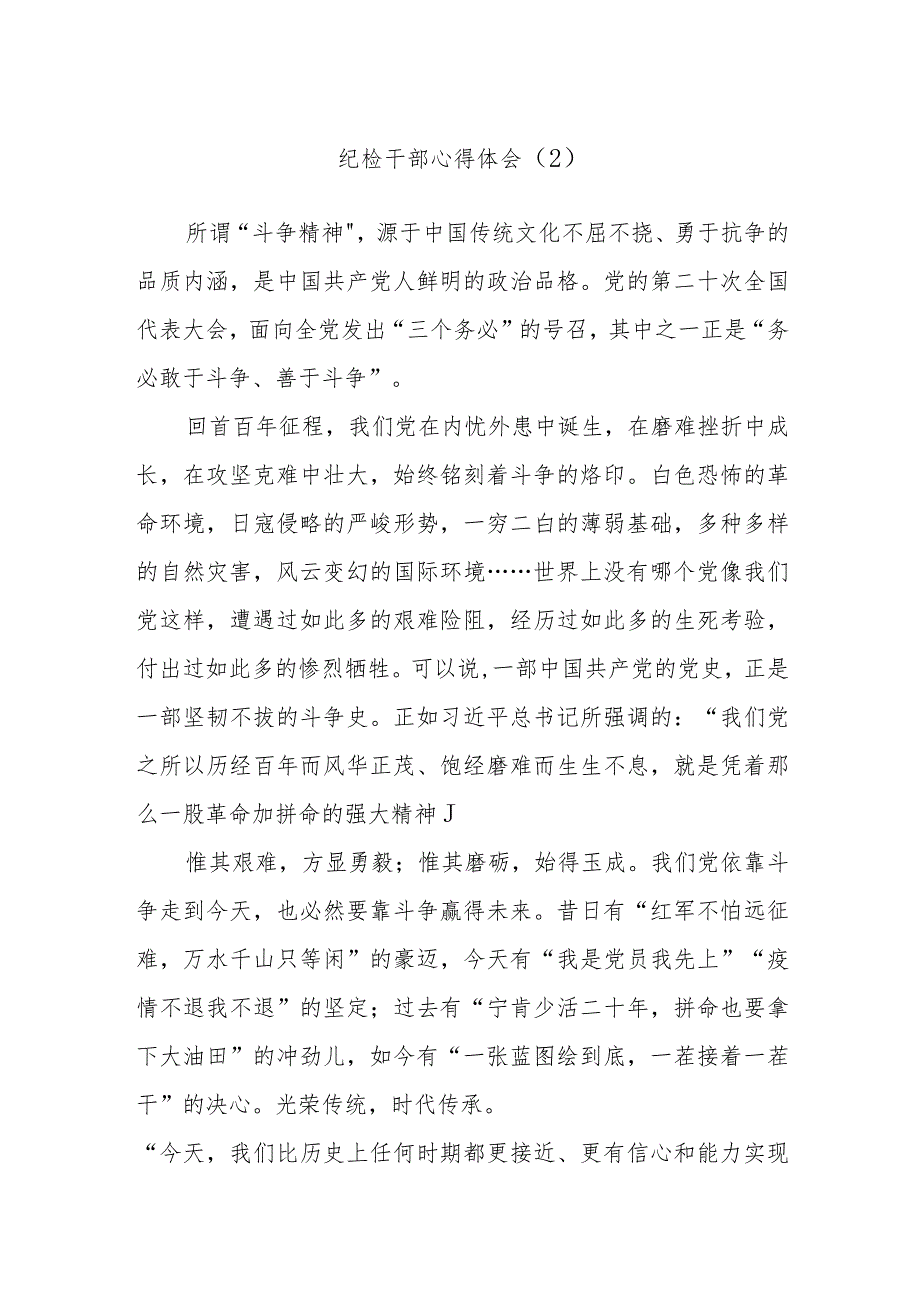 纪检干部心得体会（2）
所谓“斗争精神"，源于中国传统文化不屈不挠、勇于抗争的
品质内涵，是中国共产党人鲜明的政治品格。党的第二十次全国
代表大会，面向全党发出“三个务必”的号召，其中之一正是“务
必敢于斗争、善于斗争”。
回首百年征程，我们党在内忧外患中诞生，在磨难挫折中成
长，在攻坚克难中壮大，始终铭刻着斗争的烙印。白色恐怖的革
命环境，日寇侵略的严峻形势，一穷二白的薄弱基础，多种多样
的自然灾害，风云变幻的国际环境……世界上没有哪个党像我们
党这样，遭遇过如此多的艰难险阻，经历过如此多的生死考验，
付出过如此多的惨烈牺牲。可以说,一部中国共产党的党史，正是
一部坚韧不拔的斗争史。正如习近平总书记所强调的：“我们党
之所以历经百年而风华正茂、饱经磨难而生生不息，就是凭着那
么一股革命加拼命的强大精神J
惟其艰难，方显勇毅；惟其磨砺，始得玉成。我们党依靠斗
争走到今天，也必然要靠斗争赢得未来。昔日有“红军不怕远征
难，万水千山只等闲”的豪迈，今天有“我是党员我先上”“疫
情不退我不退”的坚定；过去有“宁肯少活二十年，拼命也要拿
下大油田”的冲劲儿，如今有“一张蓝图绘到底，一茬接着一茬
干”的决心。光荣传统，时代传承。
“今天，我们比历史上任何时期都更接近、更有信心和能力实现